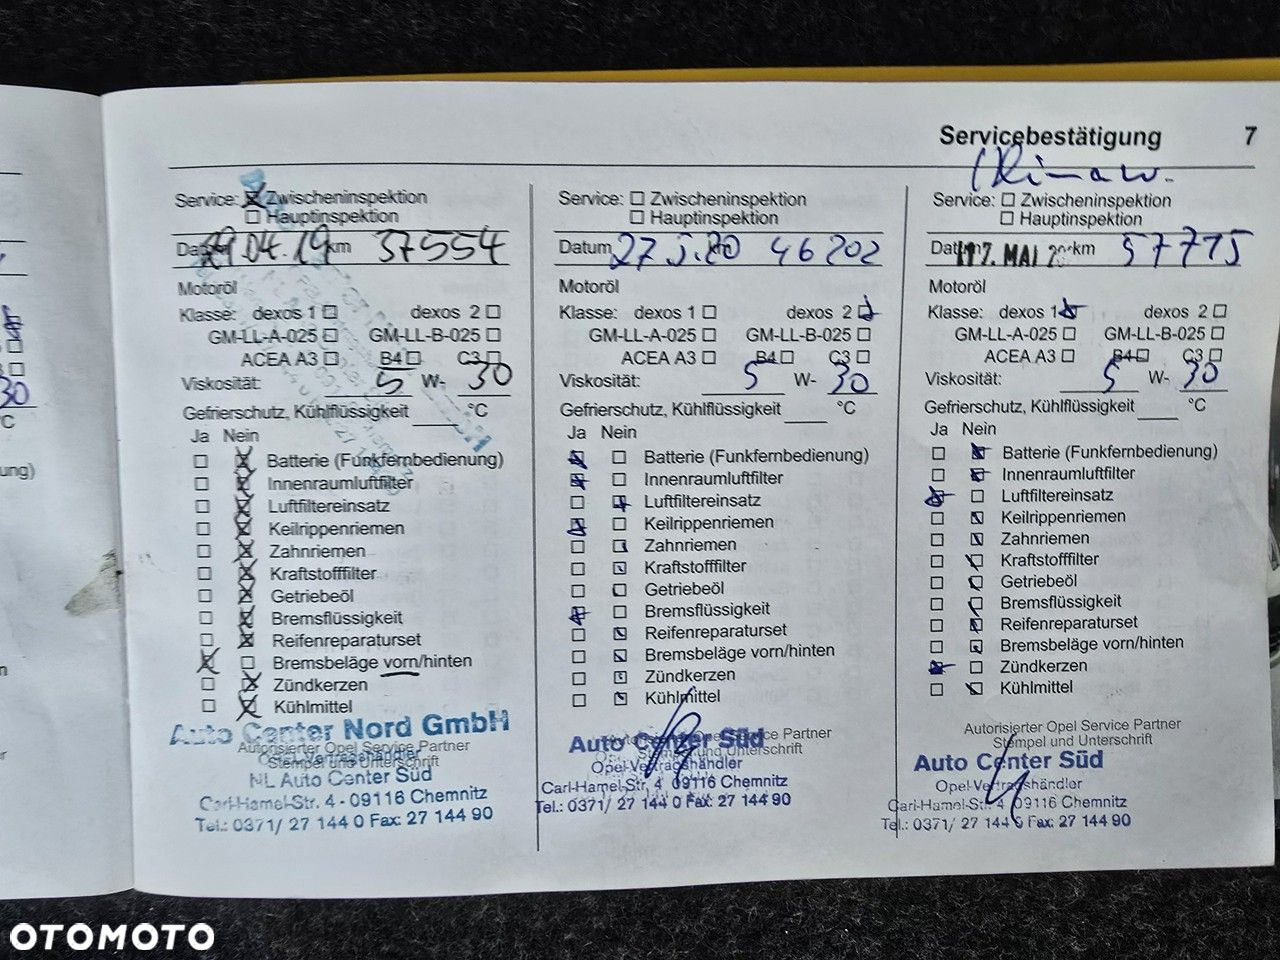 Servicebestätigung 7
Service: Zwischeninspektion
Hauptinspektion
29.04.19 km 37554
Motoröl
Klasse: dexos 1 dexos 2
GM-LL-A-025 GM-LL-B-025
ACEA A3 B4 C3
Viskosität: 5 W- 30
Gefrierschutz, Kühlflüssigkeit °C
Ja Nein
Batterie (Funkfernbedienung)
Innenraumluftfilter
Luftfiltereinsatz
Keilrippenriemen
Zahnriemen
Kraftstofffilter
Getriebeöl
Bremsflüssigkeit
Reifenreparaturset
Bremsbeläge vorn/hinten
Zündkerzen
Kühlmittel
Auto Center Nord GmbH
Autorisierter Opel Service Partner
Stempel und Unterschrift
NL Auto Center Süd
Carl-Hamel-Str. 4 - 09116 Chemnitz
Tel.: 0371/ 27 144 0 Fax: 27 144 90
Service: Zwischeninspektion
Hauptinspektion
Datum 27.5.20 46202
Motoröl
Klasse: dexos 1 dexos 2
GM-LL-A-025 GM-LL-B-025
ACEA A3 B4 C3
Viskosität: 5 W- 30
Gefrierschutz, Kühlflüssigkeit °C
Ja Nein
Batterie (Funkfernbedienung)
Innenraumluftfilter
Luftfiltereinsatz
Keilrippenriemen
Zahnriemen
Kraftstofffilter
Getriebeöl
Bremsflüssigkeit
Reifenreparaturset
Bremsbeläge vorn/hinten
Zündkerzen
Kühlmittel
Service Partner
Auto Center Süd
und Unterschrift
Opel-Vertragshändler
Carl-Hamel-Str. 4 09116 Chemnitz
Tel.: 0371/ 27 144 0 Fax: 27 144 90
Service: Zwischeninspektion
Hauptinspektion
17. MAI km 57775
Motoröl
Klasse: dexos 1 dexos 2
GM-LL-A-025 GM-LL-B-025
ACEA A3 B4 C3
Viskosität: 5 W- 30
Gefrierschutz, Kühlflüssigkeit °C
Ja Nein
Batterie (Funkfernbedienung)
Innenraumluftfilter
Luftfiltereinsatz
Keilrippenriemen
Zahnriemen
Kraftstofffilter
Getriebeöl
Bremsflüssigkeit
Reifenreparaturset
Bremsbeläge vorn/hinten
Zündkerzen
Kühlmittel
Autorisierter Opel Service Partner
Stempel und Unterschrift
Auto Center Süd
Opel-Vertragshändler
Carl-Hamel-Str. 4 09116 Chemnitz
Tel.: 0371/ 27 144 0 Fax: 27 144 90
30
°C
ung)
OTOMOTO